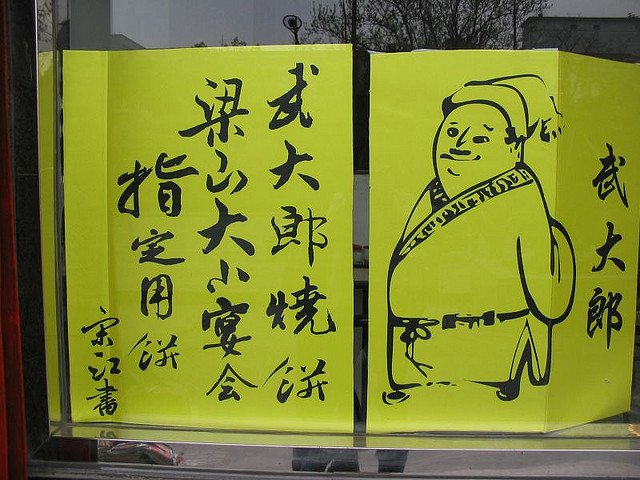 武大郎燒餅
梁山大小宴会
指定用餅
宋江書
武大郎